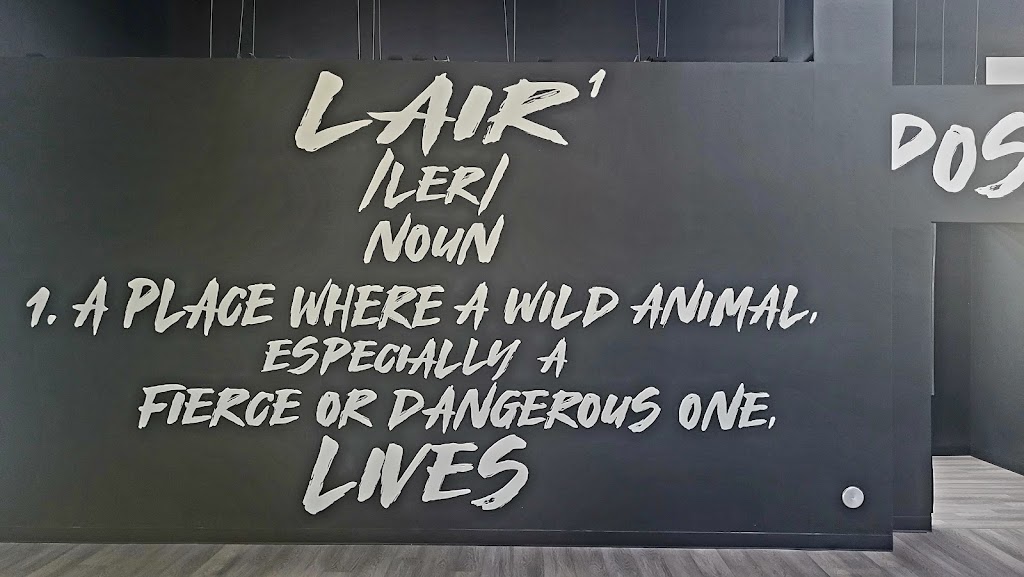 LAIR¹
/LER/
NOUN
1. A PLACE WHERE A WILD ANIMAL,
ESPECIALLY A
FIERCE OR DANGEROUS ONE,
LIVES
DOS